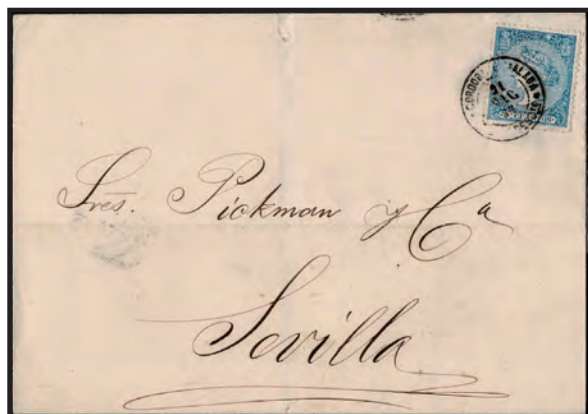 CORDOBA MALAGA
Sres. Pickman y Cª
Sevilla